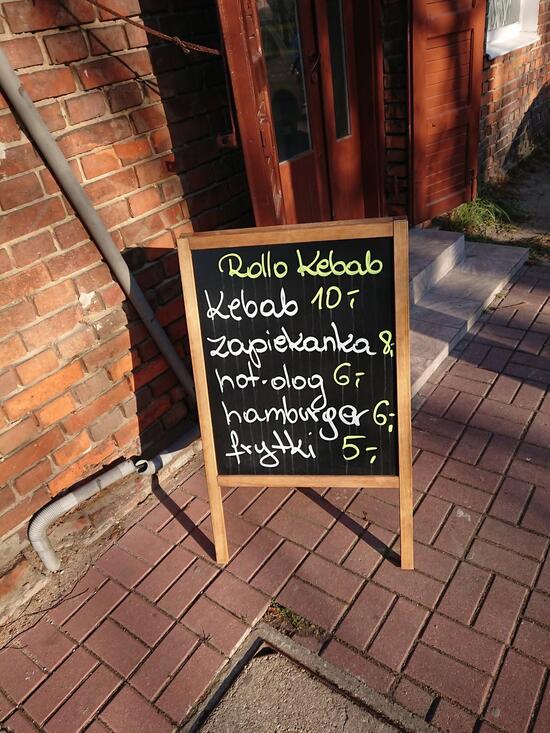 Rollo Kebab
Kebab 10,-
zapiekanka 8,-
hot-dog 6,-
hamburger 6,-
frytki 5,-